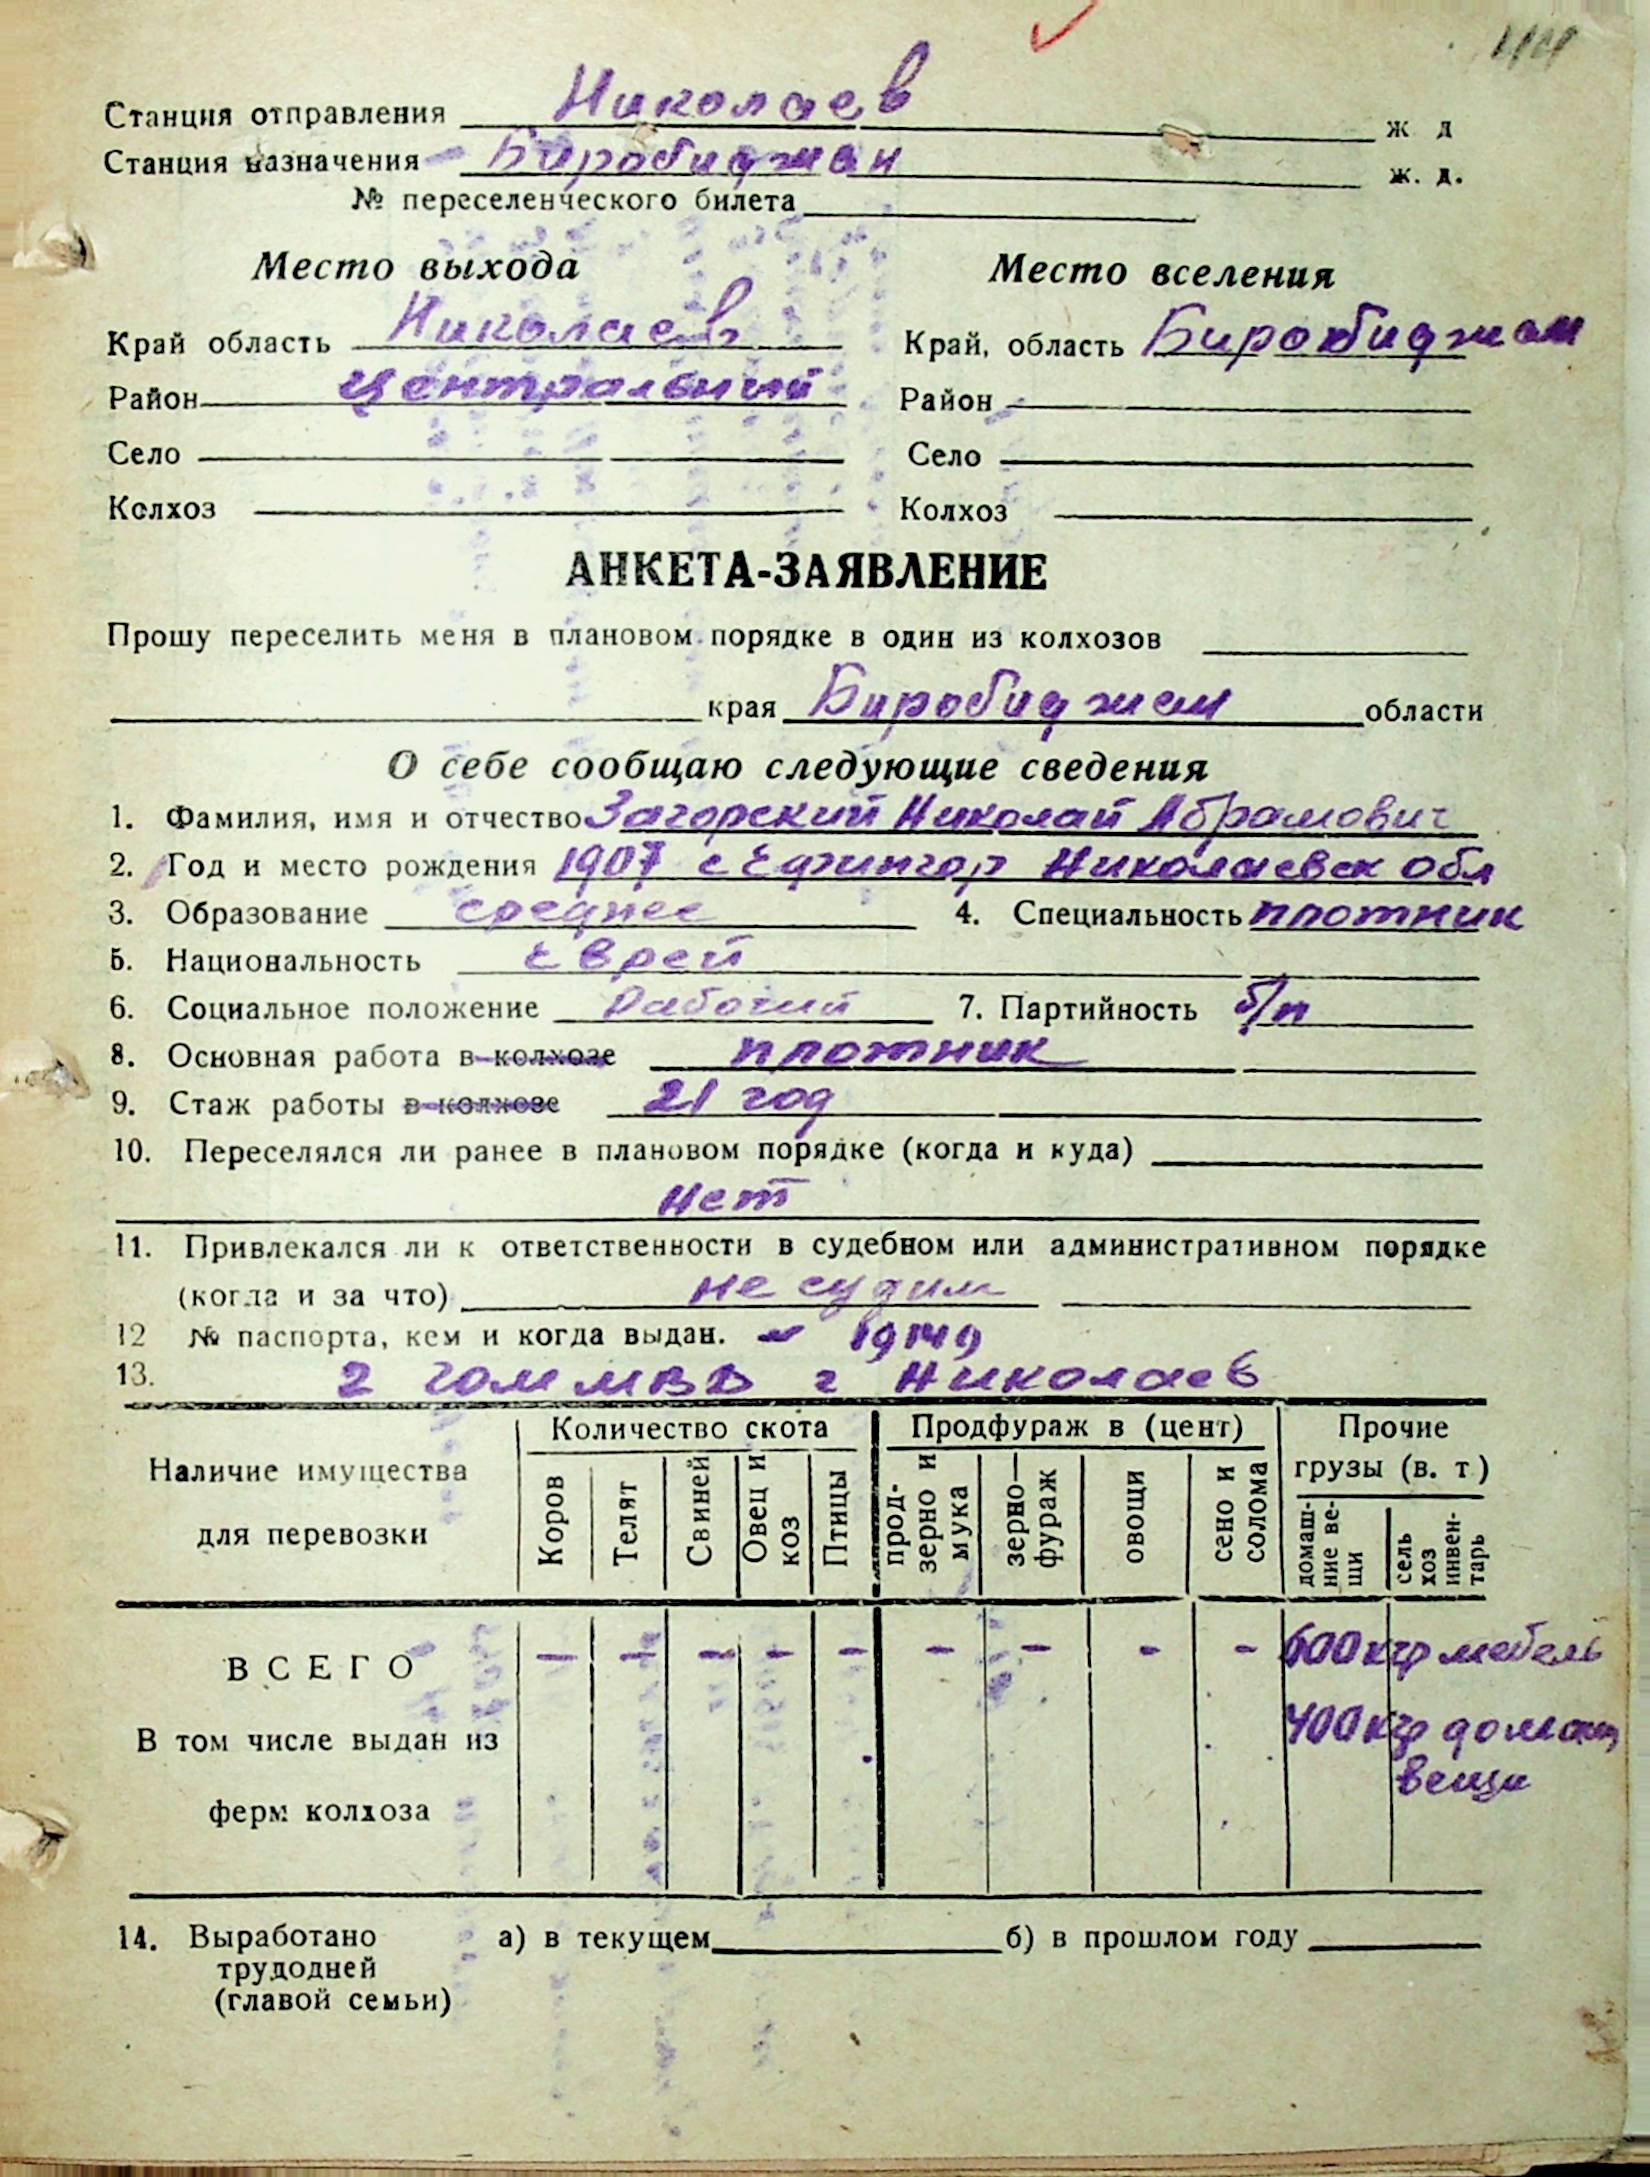 44
Станция отправления Николаев ж д
Станция назначения Биробиджан ж. д.
№ переселенческого билета
Место выхода Место вселения
Край область Николаев Край, область Биробиджан
Район Центральний Район
Село Село
Колхоз Колхоз
АНКЕТА-ЗАЯВЛЕНИЕ
Прошу переселить меня в плановом порядке в один из колхозов
края Биробиджан области
О себе сообщаю следующие сведения
1. Фамилия, имя и отчество Загорский Николай Абрамович
2. Год и место рождения 1907 с Ефингор Николаевск обл
3. Образование среднее 4. Специальность плотник
5. Национальность Еврей
6. Социальное положение Рабочий 7. Партийность б/п
8. Основная работа в колхозе плотник
9. Стаж работы в колхозе 21 год
10. Переселялся ли ранее в плановом порядке (когда и куда)
нет
11. Привлекался ли к ответственности в судебном или административном порядке
(когда и за что) не судим
12 № паспорта, кем и когда выдан. - 19149
13. 2 гом МВД г Николаев
Наличие имущества для перевозки
Количество скота
Коров
Телят
Свиней
Овец и коз
Птицы
Продфураж в (цент)
прод-зерно и мука
зерно—фураж
овощи
сено и солома
Прочие грузы (в. т)
домаш-ние ве-щи
сель хоз инвен-тарь
ВСЕГО — — — — — — — — — 600 кгр мебель
В том числе выдан из 400 кгр домаш
вещи
ферм колхоза
14. Выработано а) в текущем б) в прошлом году
трудодней
(главой семьи)